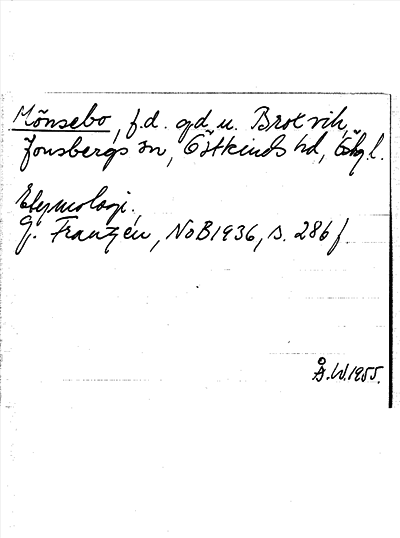 Mönsebo, f.d. gd u. Brotvik,
Jonsbergs sn, Östkinds hd, Ög.l.
Etymologi.
G. Franzén, NoB 1936, s. 286 f.
Å.W. 1955.